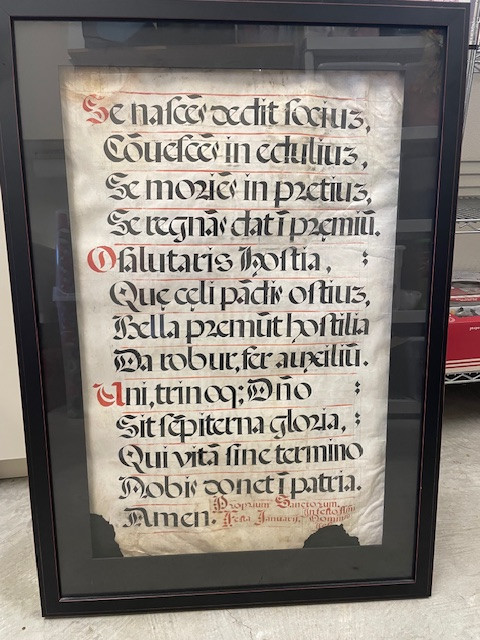 Se naſcēs dedit ſociuʒ,
Cōueſcēs in eduliuʒ,
Se moriēs in pretiuʒ,
Se regnās dat ī pręmiū.
O ſalutaris hoſtia, :
Quę cęli pādis oſtiuʒ,
Bella premūt hoſtilia
Da robur, fer auxiliū.
Uni, trinoqꝫ Dño :
Sit ſēpiterna gloria, :
Qui vitā ſine termino
Nobis donet ī patria.
Amen. Proprium Sanctorum.
Feſta Januarii.